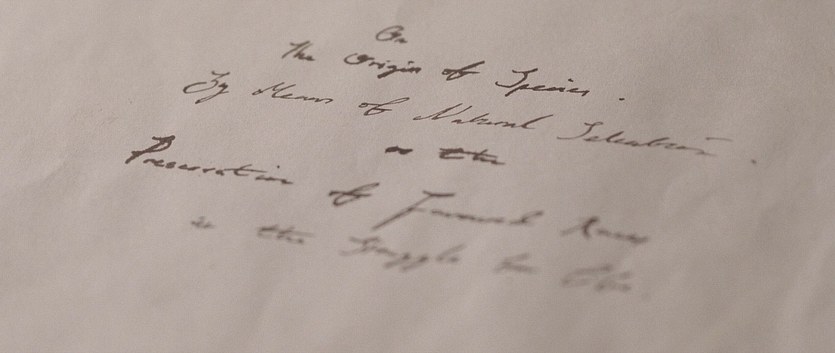 On
The Origin of Species.
By Means of Natural Selection.
or the
Preservation of Favoured Races
in the Struggle for Life.